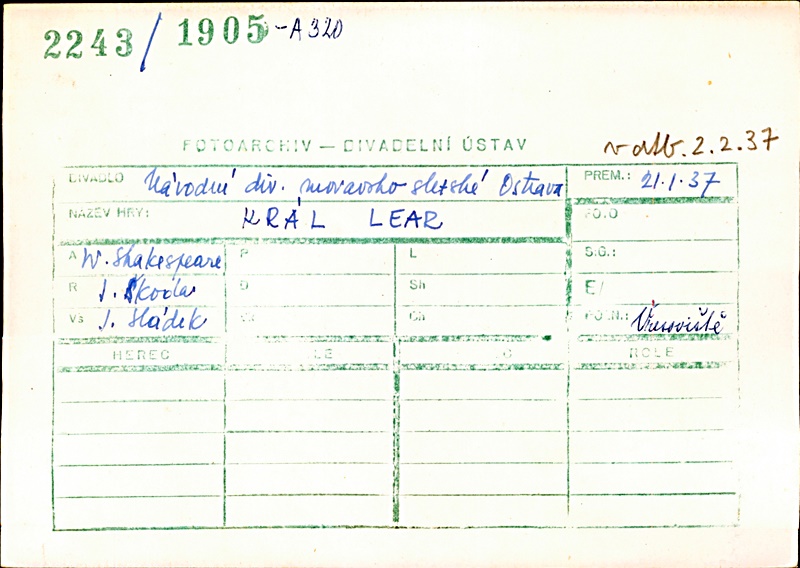 2243/1905-A320
FOTOARCHIV — DIVADELNÍ ÚSTAV
v alb. 2.2.37
DIVADLO Národní div. moravsko slezské Ostrava
PREM.: 21.1.37
NÁZEV HRY: KRÁL LEAR
FO.O
A W. Shakespeare P L S.G.:
R J. Škoda D Sh E/
Vs J. Sládek Ch FO.N.: Vřesoviště
HEREC ROLE